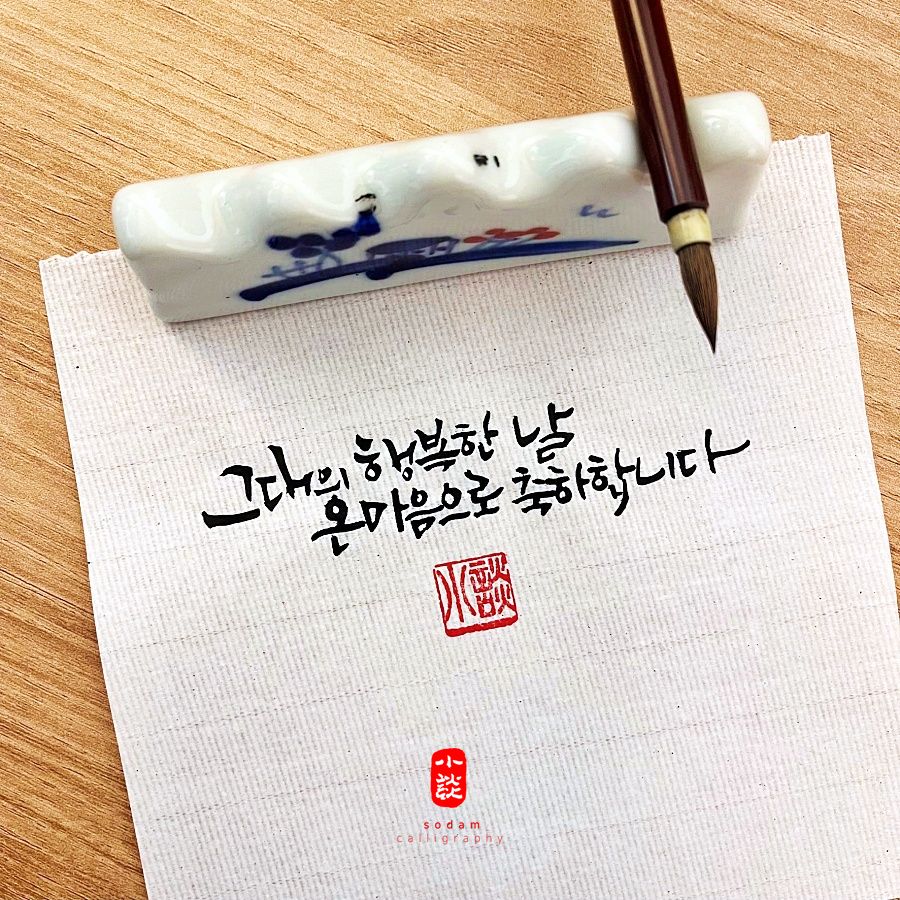 그대의 행복한 날
온 마음으로 축하합니다
小談
小談
sodam
calligraphy